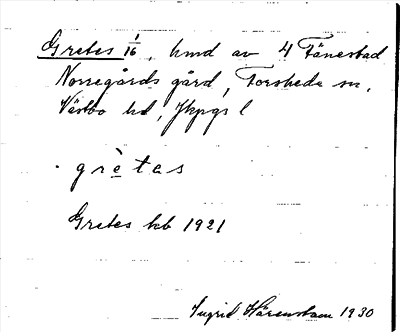 Gretas 1/16, hmd av 4 Tånestad
Norregårds gård, Forsheda sn,
Västbo hd, Jkpgs l
· grètas
Gretas kb 1921
Ingrid Härenstam 1930